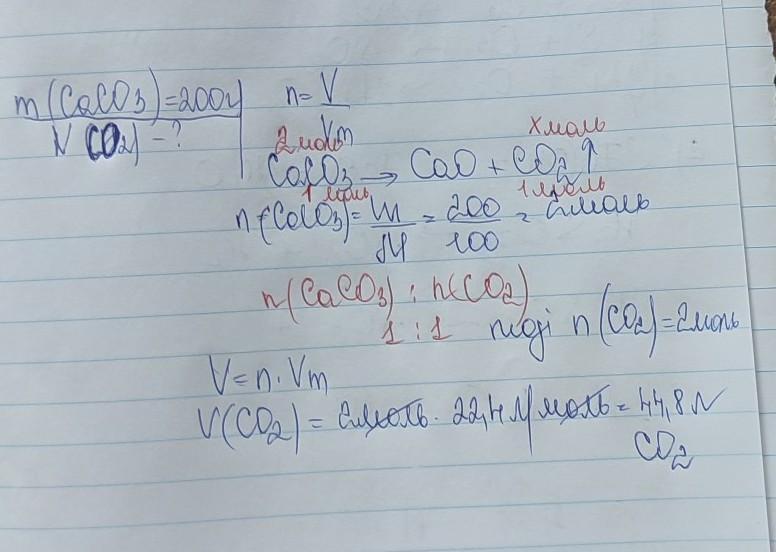 m(CaCO3)=200г n=V/Vm
V(CO2) - ?
2моль хмоль
CaCO3 → CaO + CO2↑
1 моль 1 моль
n(CaCO3)= m/M = 200/100 = 2моль
n(CaCO3) : n(CO2)
1 : 1 тоді n(CO2)=2моль
V=n·Vm
V(CO2) = 2моль · 22,4 л/моль = 44,8 л
CO2